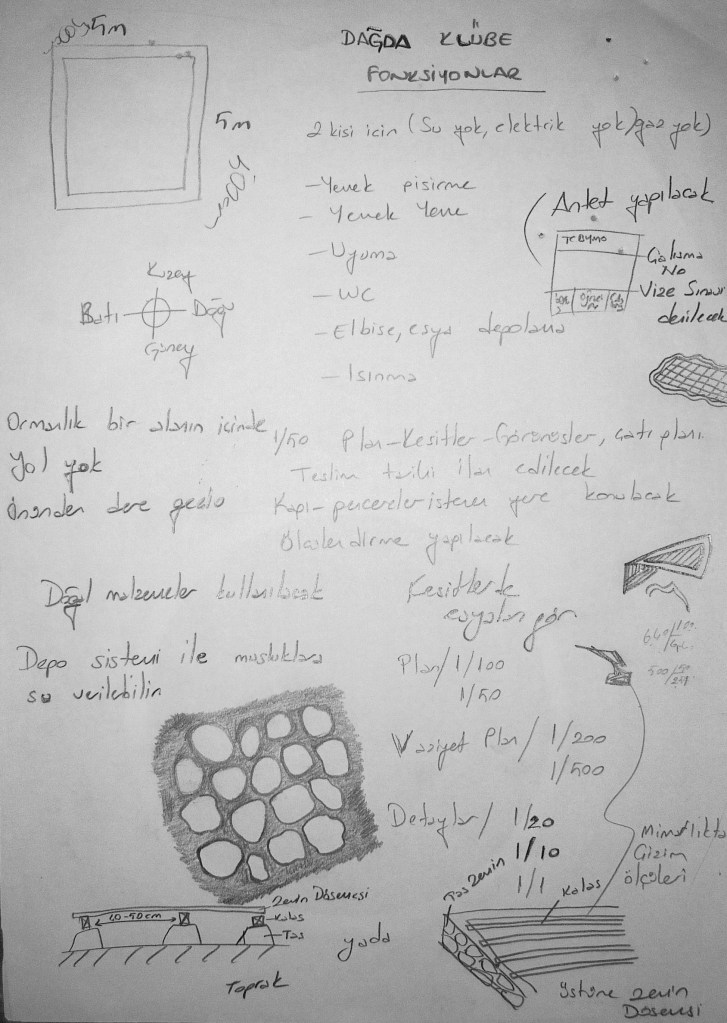 5m
DAĞDA KLÜBE
FONKSİYONLAR
5m
2 kisi için (Su yok, elektrik yok/gaz yok)
-Yemek pisirme
- Yemek Yeme
-Uyuma
-WC
-Elbise, esya depolama
-Isınma
Antet yapılacak
Calısma
No
Vize Sınavı
denilecek
Kuzey
Batı
Doğu
Güney
Ormanlık bir alanın içinde
Yol yok
Önünden dere geçiyo
1/50 Plan-Kesitler-Görünüsler, çatı planı
Teslim tarihi ilan edilecek
Kapı-pencereler istenen yere konulacak
Ölçülendirme yapılacak
Doğal malzemeler kullanılacak
Kesitlerde
esyaları gör.
Depo sistemi ile musluklara
su verilebilir
Plan/1/100
1/50
Vaziyet Plan/ 1/200
1/500
Detaylar/ 1/20
1/10
1/1
Mimarlıkta
Çizim
ölçüleri
Zemin Dösemesi
40-50cm
Kalas
Tas
Toprak
yada
Tas zemin
Kalas
Üstüne Zemin
Dösemesi